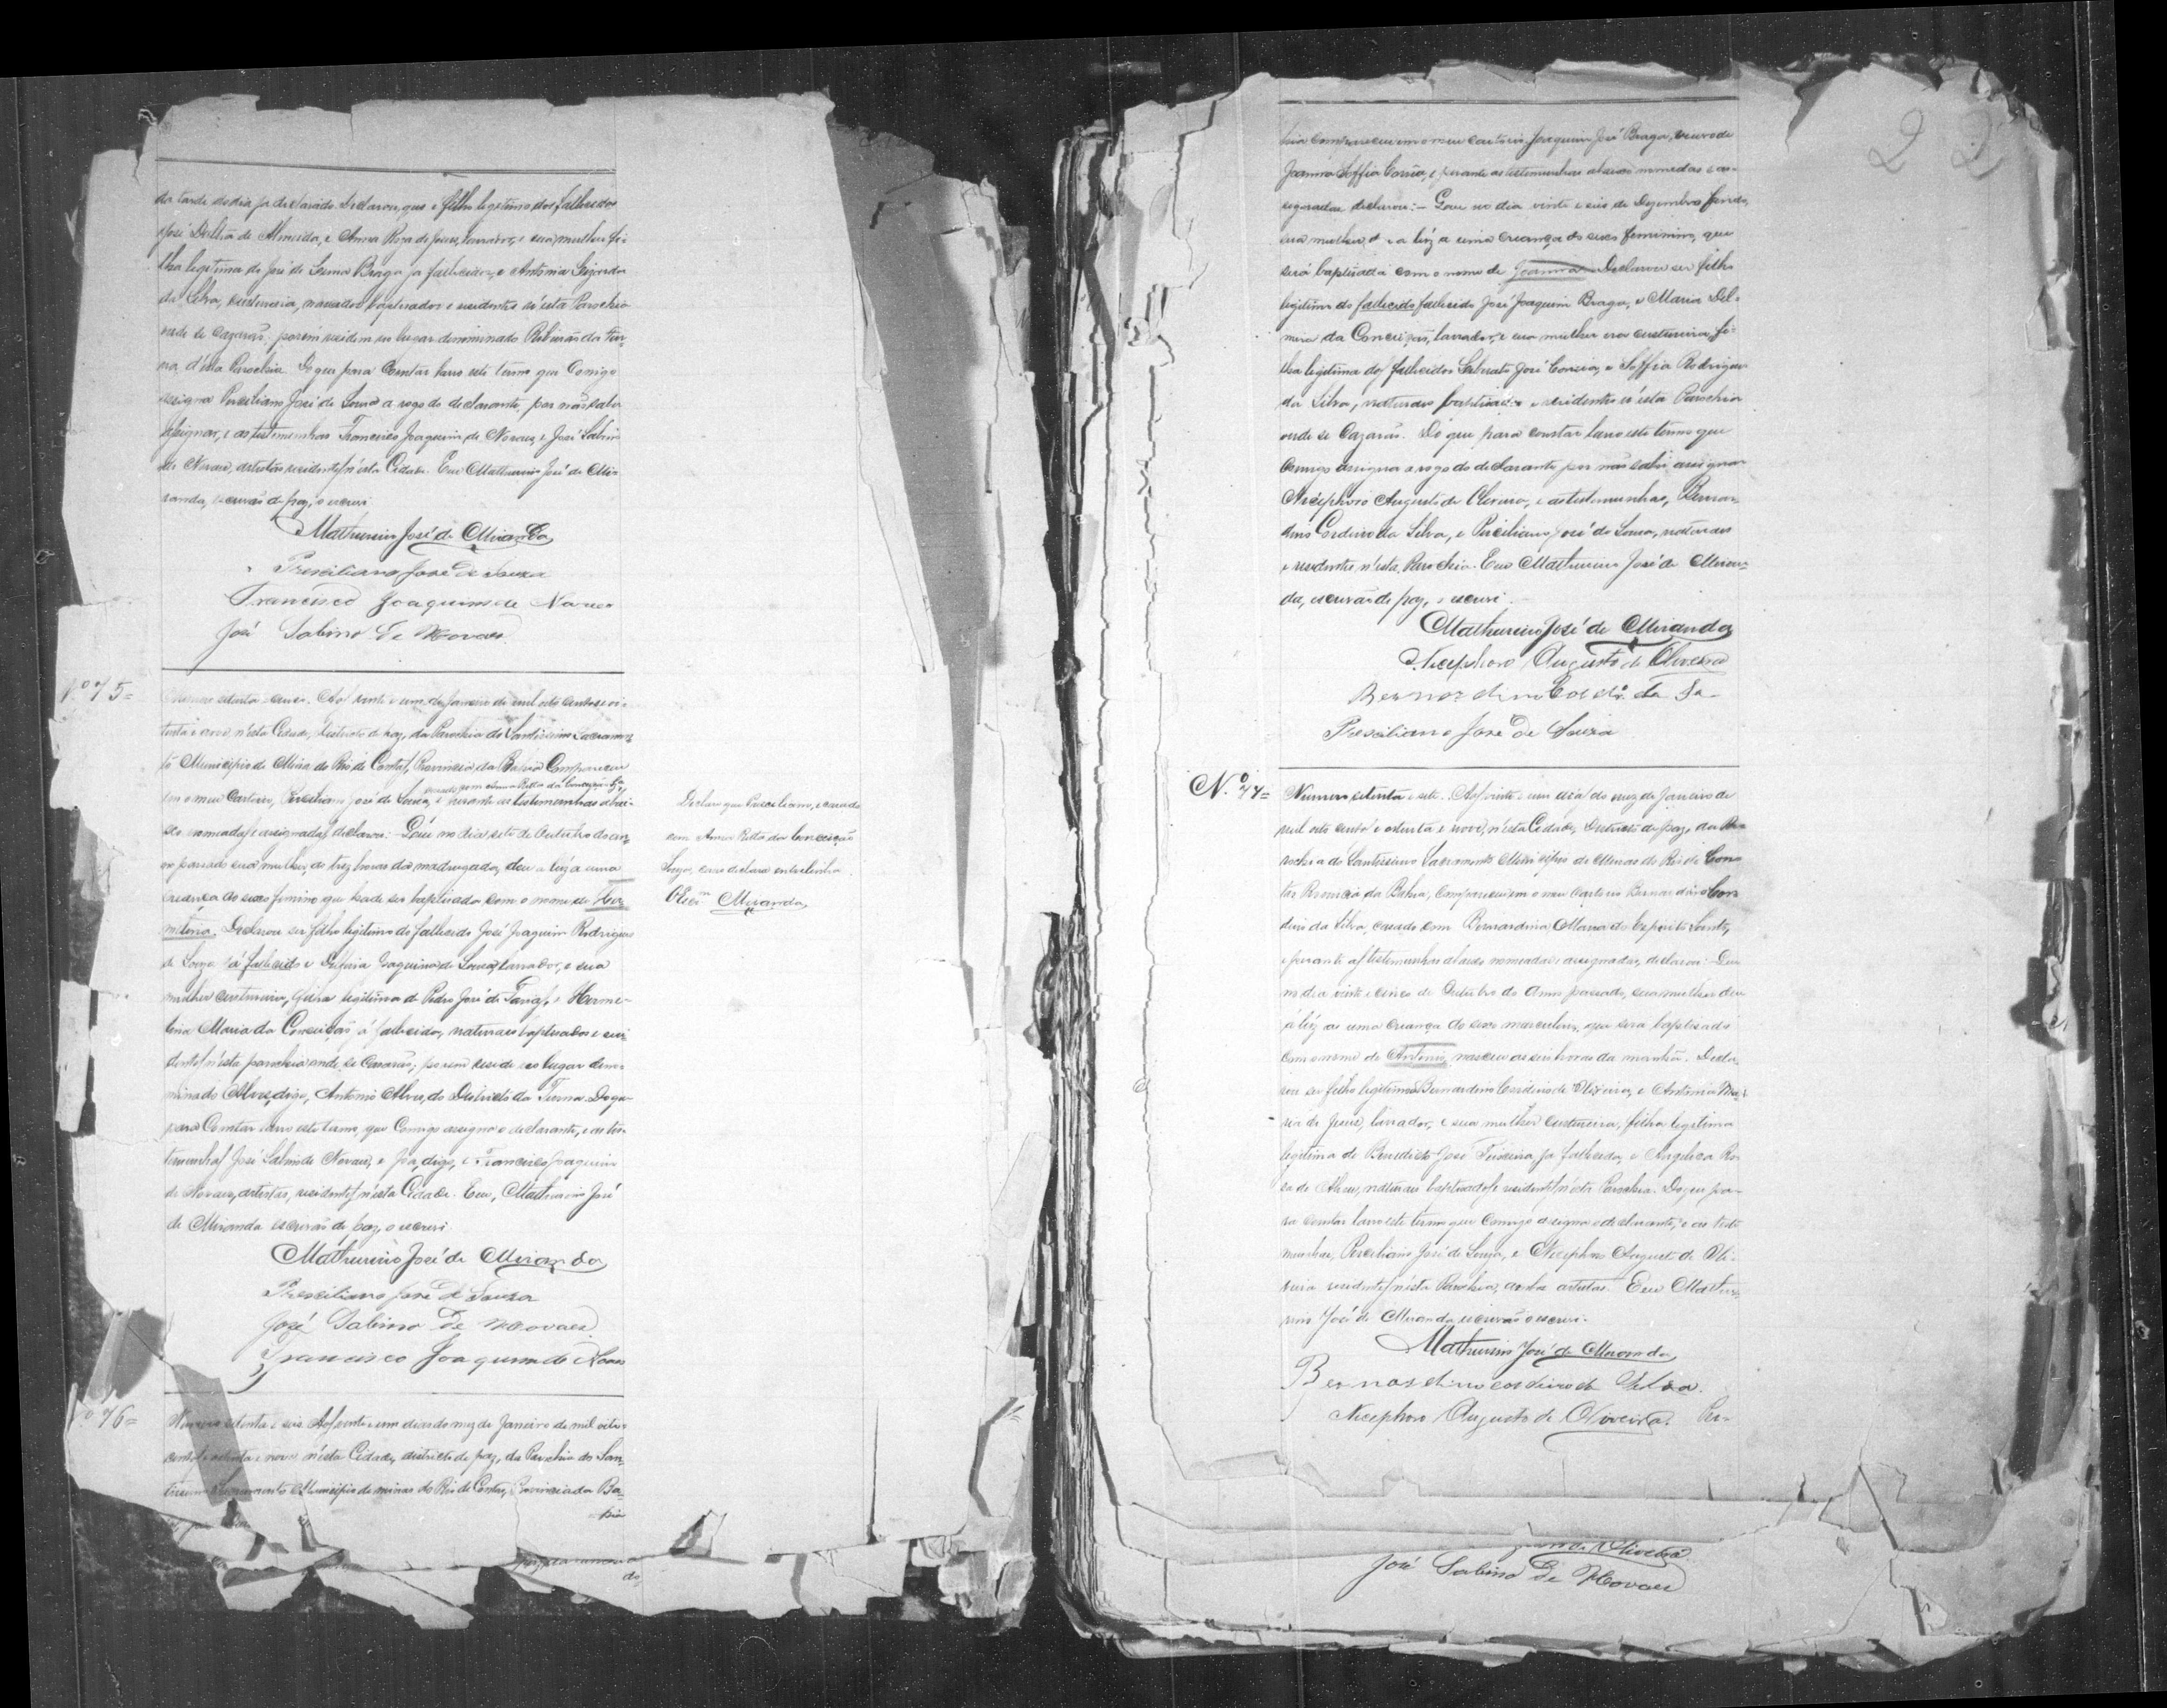 da tarde do dia ja declarado. Declarou, que é filho legitimo dos fallecidos
José Delfiã de Almeida, e Anna Roza de Jesus, lavrador, e sua mulher fi-
lha legitima de José de Souza Braga ja fallecidos, e Antonia
da Silva, custureira, naturaes baptisados e residentes n'esta Parochia
onde se cazarão, porem residem no lugar denominado Ribeirão da Fur-
na, d'esta Parochia. Do que para Constar lavro este termo que Comigo
assigna Presciliano José de Souza a rogo do declarante, por não saber
assignar, e as testemunhas Francisco Joaquim de Novaes, e José Sabino
de Novaes, artistas residentes n'esta Cidade. Eu Mathurino José de Mi-
randa, escrivão de paz, o escrevi.
Mathurino José de Miranda
Presciliano José de Souza
Francisco Joaquim de Novaes
José Sabino de Novaes.
Nº 75=
Numero setenta e cinco. Aos vinte e um de Janeiro de mil oito centos e oi-
tenta e nove n'esta Cidade, Districto de paz, da Parochia do Santissimo Sacramen-
to Municipio de Minas do Rio de Contas, Provincia da Bahia Compareceu
casado com Anna Ritta da Conceição
em o meu Cartorio, Presciliano José de Souza, e perante as testemunhas abai-
xo nomeadas e assignadas, declarou: Que no dia sete de Outubro do an-
no passado sua mulher, as trez horas da madrugada, deu a luz a uma
creança do sexo feminino que hade ser baptisada com o nome de Her
metina. Declarou ser filho legitimo do fallecido José Joaquim Rodrigues
de Souza já fallecido e Joaquina de Souza, lavrador, e sua
mulher custureira, filha legitima de Pedro José de Farias, e Herme-
lina Maria da Conceição já fallecida, naturaes baptisados e resi-
dentes n'esta parochia onde se Casarão, porem reside no lugar deno-
minado Alves, digo, Antonio Alves, do Districto da Furna. Do que
para Constar lavro este termo, que Comigo assigna o declarante, e as tes-
temunhas José Sabino de Novaes, e Joa, digo, e Francisco Joaquim
de Novaes, artistas, residentes n'esta Cidade. Eu, Mathurino José
de Miranda escrivão de paz, o escrevi.
Mathurino José de Miranda
Presciliano José de Souza
José Sabino de Novaes.
Francisco Joaquim de Novaes
Declaro que Presciliano, é casado
com Anna Ritta da Conceição
digo, como declara entrelinha.
Miranda
Nº 76=
Numero setenta e seis. Aos vinte e um dias do mez de Janeiro de mil oito-
centos e oitenta e nove n'esta Cidade, districto de paz, da Parochia do San-
tissimo Sacramento Municipio de minas do Rio de Contas, Provincia da Ba-
hia
22
hia compareceu em o meu Cartorio Joaquim José Braga, viuvo de
Joanna Soffia Corrêa, e perante as testemunhas abaixo nomeadas e as-
signadas declarou:- Que no dia vinte e seis de Dezembro findo,
sua mulher, deu a luz a uma criança do sexo feminino, que
será baptisada com o nome de Joanna. Declarou ser filho
legitimo do fallecido fallecido José Joaquim Braga, e Maria Del-
mira da Conceição, lavrador, e sua mulher era custureira, fi-
lha legitima dos fallecidos José Correia, e Soffia Rodrigues
da Silva, naturaes baptisados e residentes n'esta Parochia
onde se Cazarão. Do que para constar lavro este termo que
Comigo assigna a rogo do declarante por não saber assignar
Nicephoro Augusto de Oliveira, e as testemunhas, Bernar-
dino Cordeiro da Silva, e Presciliano José de Souza, naturaes
e residentes n'esta Parochia. Eu Mathurino José de Miran-
da, escrivão de paz, o escrevi.
Mathurino José de Miranda
Nicephoro Augusto de Oliveira
Bernardino Cordº da Sa
Presciliano José de Souza
Nº 77=
Numero setenta e sete. Aos vinte e um dias do mez de Janeiro de
mil oito centos e oitenta e nove, n'esta Cidade, Districto de paz, da Pa-
rochia do Santissimo Sacramento Municipio de Minas do Rio de Con-
tas Provincia da Bahia, compareceu em o meu Cartorio Bernardino Cor-
deiro da Silva, casado com Bernardina Maria do Espirito Santo,
e perante as testemunhas abaixo nomeadas e assignadas, declarou: Que
no dia vinte e cinco de Outubro do Anno passado, sua mulher deu
á luz a uma creança do sexo masculino, que será baptisado
com o nome de Antonio, nasceu as seis horas da manhã. Decla-
rou ser filho legitimo Bernardino Cordeiro de Oliveira, e Antonia Ma-
ria de Jesus, lavrador, e sua mulher custureira, filha legitima
legitima de Benedicto José Teixeira ja fallecido, e Angelica Ro-
sa de Abreu, naturaes baptisados e residentes n'esta Parochia. Do que pa-
ra constar lavro este termo que Comigo assigna o declarante, e as teste-
munhas, Presciliano José de Souza, e Nicephoro Augusto de Oli-
veira residentes n'esta Parochia, ambos artistas. Eu Mathu-
rino José de Miranda escrivão o escrevi.
Mathurino José de Miranda
Bernardino cordeiro da Silva.
Nicephoro Augusto de Oliveira. Pre-
de Oliveira
José Sabino de Novaes